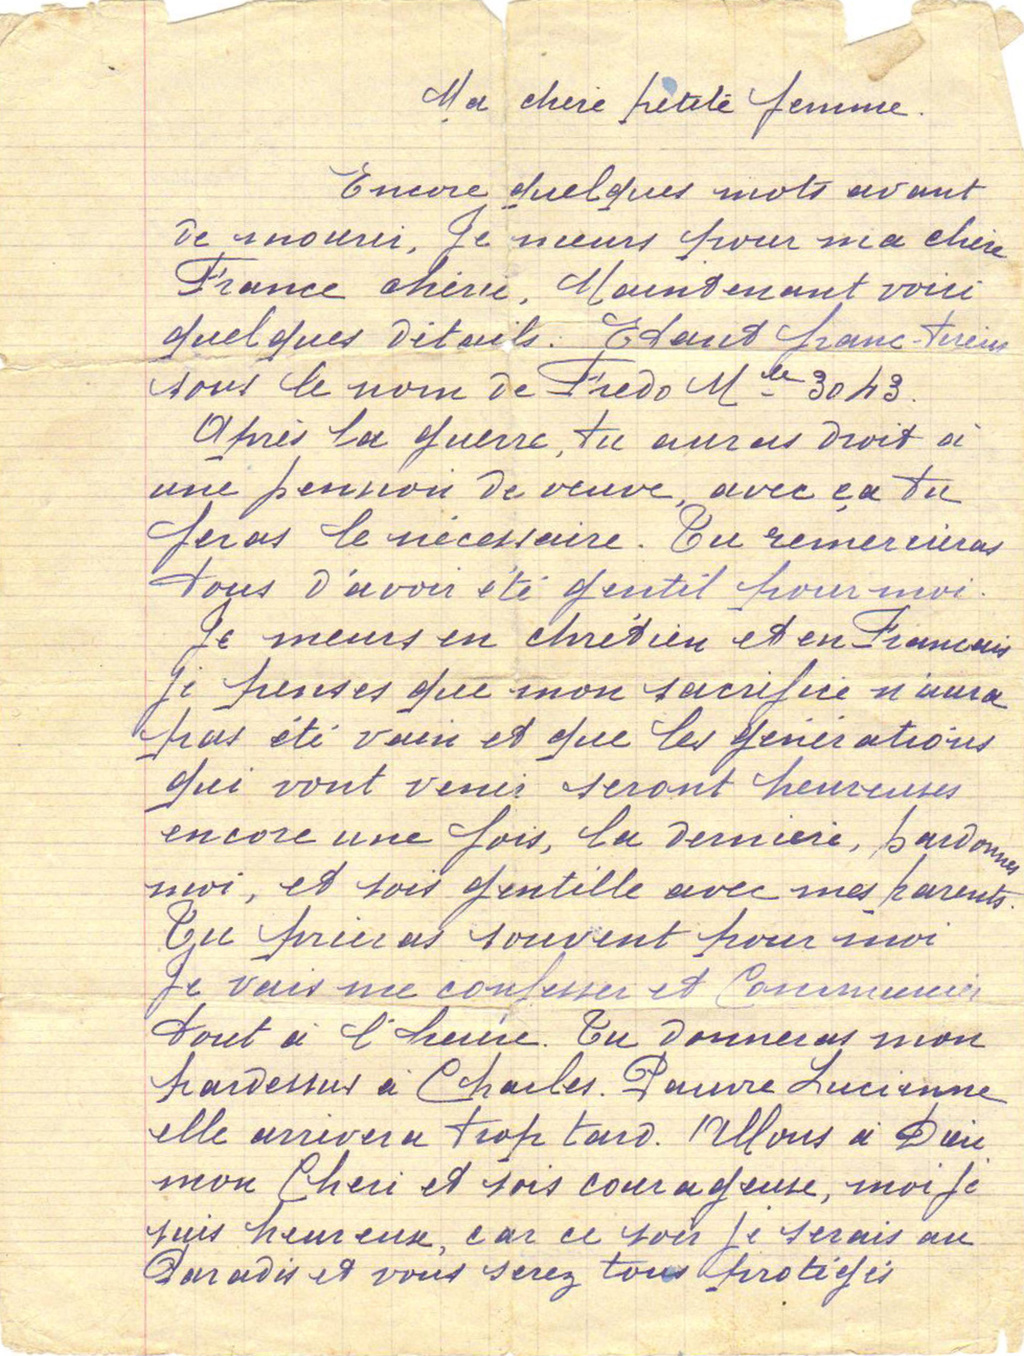 Ma chere petite femme.
Encore quelques mots avant
de mourir, Je meurs pour ma chère
France chérie, Maintenant voici
quelques détails. Etant franc-tireur
sous le nom de Fredo Mle 3043.
Après la guerre, tu auras droit à
une pension de veuve, avec ça tu
feras le nécessaire. Tu remercieras
tous d'avoir été gentil pour moi.
Je meurs en chrétien et en Francais
Je penses que mon sacrifice n'aura
pas été vain et que les générations
qui vont venir seront heureuses
encore une fois, la dernière, pardonnes
moi, et sois gentille avec mes parents.
Tu prieras souvent pour moi
Je vais me confesser et Communier
tout à l'heure. Tu donneras mon
pardessus à Charles. Pauvre Lucienne
elle arrivera trop tard. Allons à Dieu
mon Cheri et sois courageuse, moi je
suis heureux, car ce soir je serais au
Paradis et vous serez tous protégés